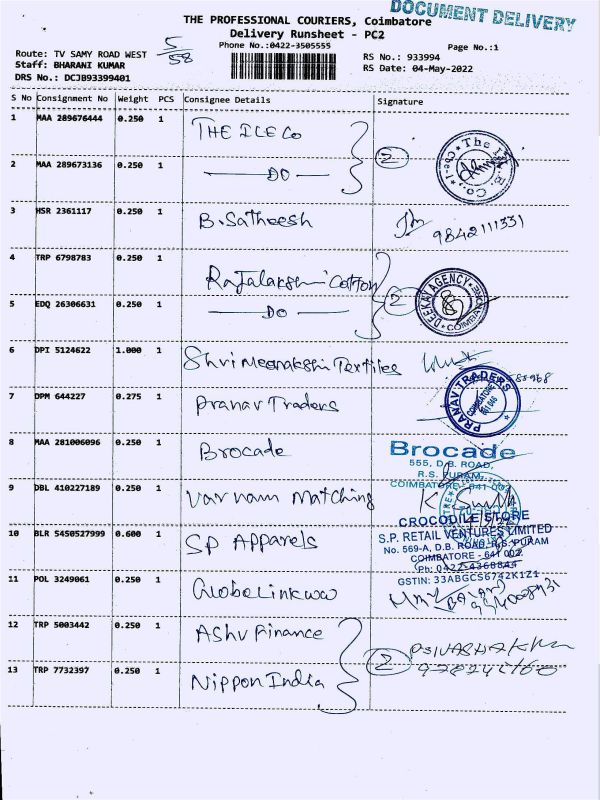 DOCUMENT DELIVERY
THE PROFESSIONAL COURIERS, Coimbatore
Delivery Runsheet - PC2
Phone No.:0422-3505555
Page No.:1
Route: TV SAMY ROAD WEST
5/58
RS No.: 933994
Staff: BHARANI KUMAR
RS Date: 04-May-2022
DRS No.: DCJB93399401
S No Consignment No Weight PCS Consignee Details Signature
1 MAA 289676444 0.250 1 THE ILE Co
2
2 MAA 289673136 0.250 1 DO
3 HSR 2361117 0.250 1 B.Satheesh 9842111331
4 TRP 6798783 0.250 1 Rajalakshmi Cotton
2
DEEKAY AGENCY
5 EDQ 26306631 0.250 1 DO
6 DPI 5124622 1.000 1 Shri Meenakshi Textiles
7 DPM 644227 0.275 1 Pranav Traders
PRANAV TRADERS
COIMBATORE
8 MAA 281006096 0.250 1 Brocade
Brocade
555, D.B. ROAD,
R.S. PURAM,
COIMBATORE - 641 002
9 DBL 410227189 0.250 1 Varnam Matching
CROCODILE STORE
10 BLR 5450527999 0.600 1 SP Apparels
S.P. RETAIL VENTURES LIMITED
No. 569-A, D.B. ROAD, R.S. PURAM
COIMBATORE - 641 002
Ph: 0422-4368844
GSTIN: 33ABGCS6742K1Z1
11 POL 3249061 0.250 1
12 TRP 5003442 0.250 1 Ashv Finance
2
13 TRP 7732397 0.250 1 Nippon India